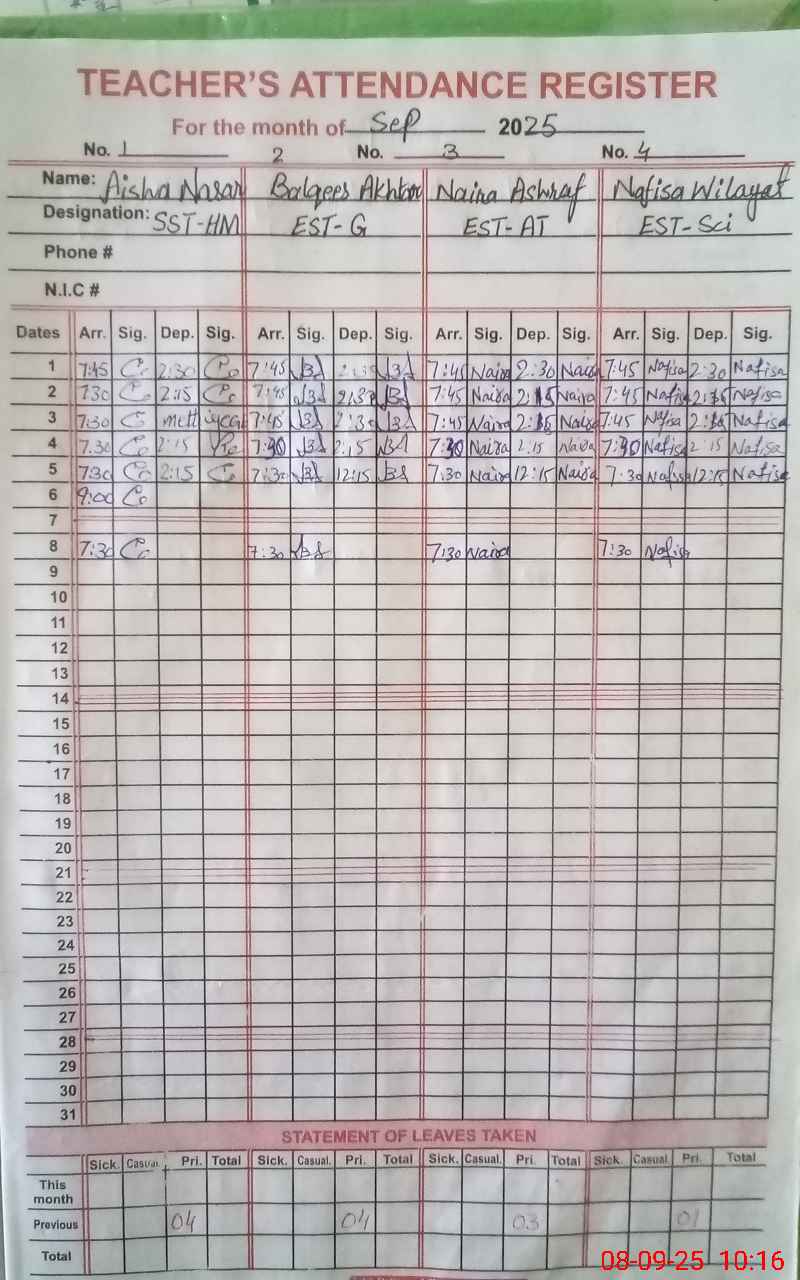 TEACHER'S ATTENDANCE REGISTER
For the month of Sep 2025
No. 1 2 No. 3 No. 4
Name: Aisha Nasar Balqees Akhtar Naira Ashraf Nafisa Wilayat
Designation: SST-HM EST-G EST-AT EST-Sci
Phone #
N.I.C #
Dates Arr. Sig. Dep. Sig. Arr. Sig. Dep. Sig. Arr. Sig. Dep. Sig. Arr. Sig. Dep. Sig.
1 7:45 2:30 7:45 7:45 Naira 2:30 Naira 7:45 Nafisa 2:30 Nafisa
2 7:30 2:15 7:45 7:45 Naira 2:15 Naira 7:45 Nafisa 2:15 Nafisa
3 7:30 7:45 2:30 7:45 Naira 2:15 Naira 7:45 Nafisa 2:15 Nafisa
4 7:30 2:15 7:30 2:15 7:30 Naira 2:15 Naira 7:30 Nafisa 2:15 Nafisa
5 7:30 2:15 7:30 12:15 7:30 Naira 12:15 Naira 7:30 Nafisa 12:15 Nafisa
6 9:00
7
8 7:30 7:30 7:30 Naira 7:30 Nafisa
9
10
11
12
13
14
15
16
17
18
19
20
21
22
23
24
25
26
27
28
29
30
31
STATEMENT OF LEAVES TAKEN
Sick. Casual Pri. Total Sick. Casual. Pri. Total Sick. Casual. Pri. Total Sick. Casual Pri. Total
This month
Previous 04 04 03 01
Total
08-09-25 10:16